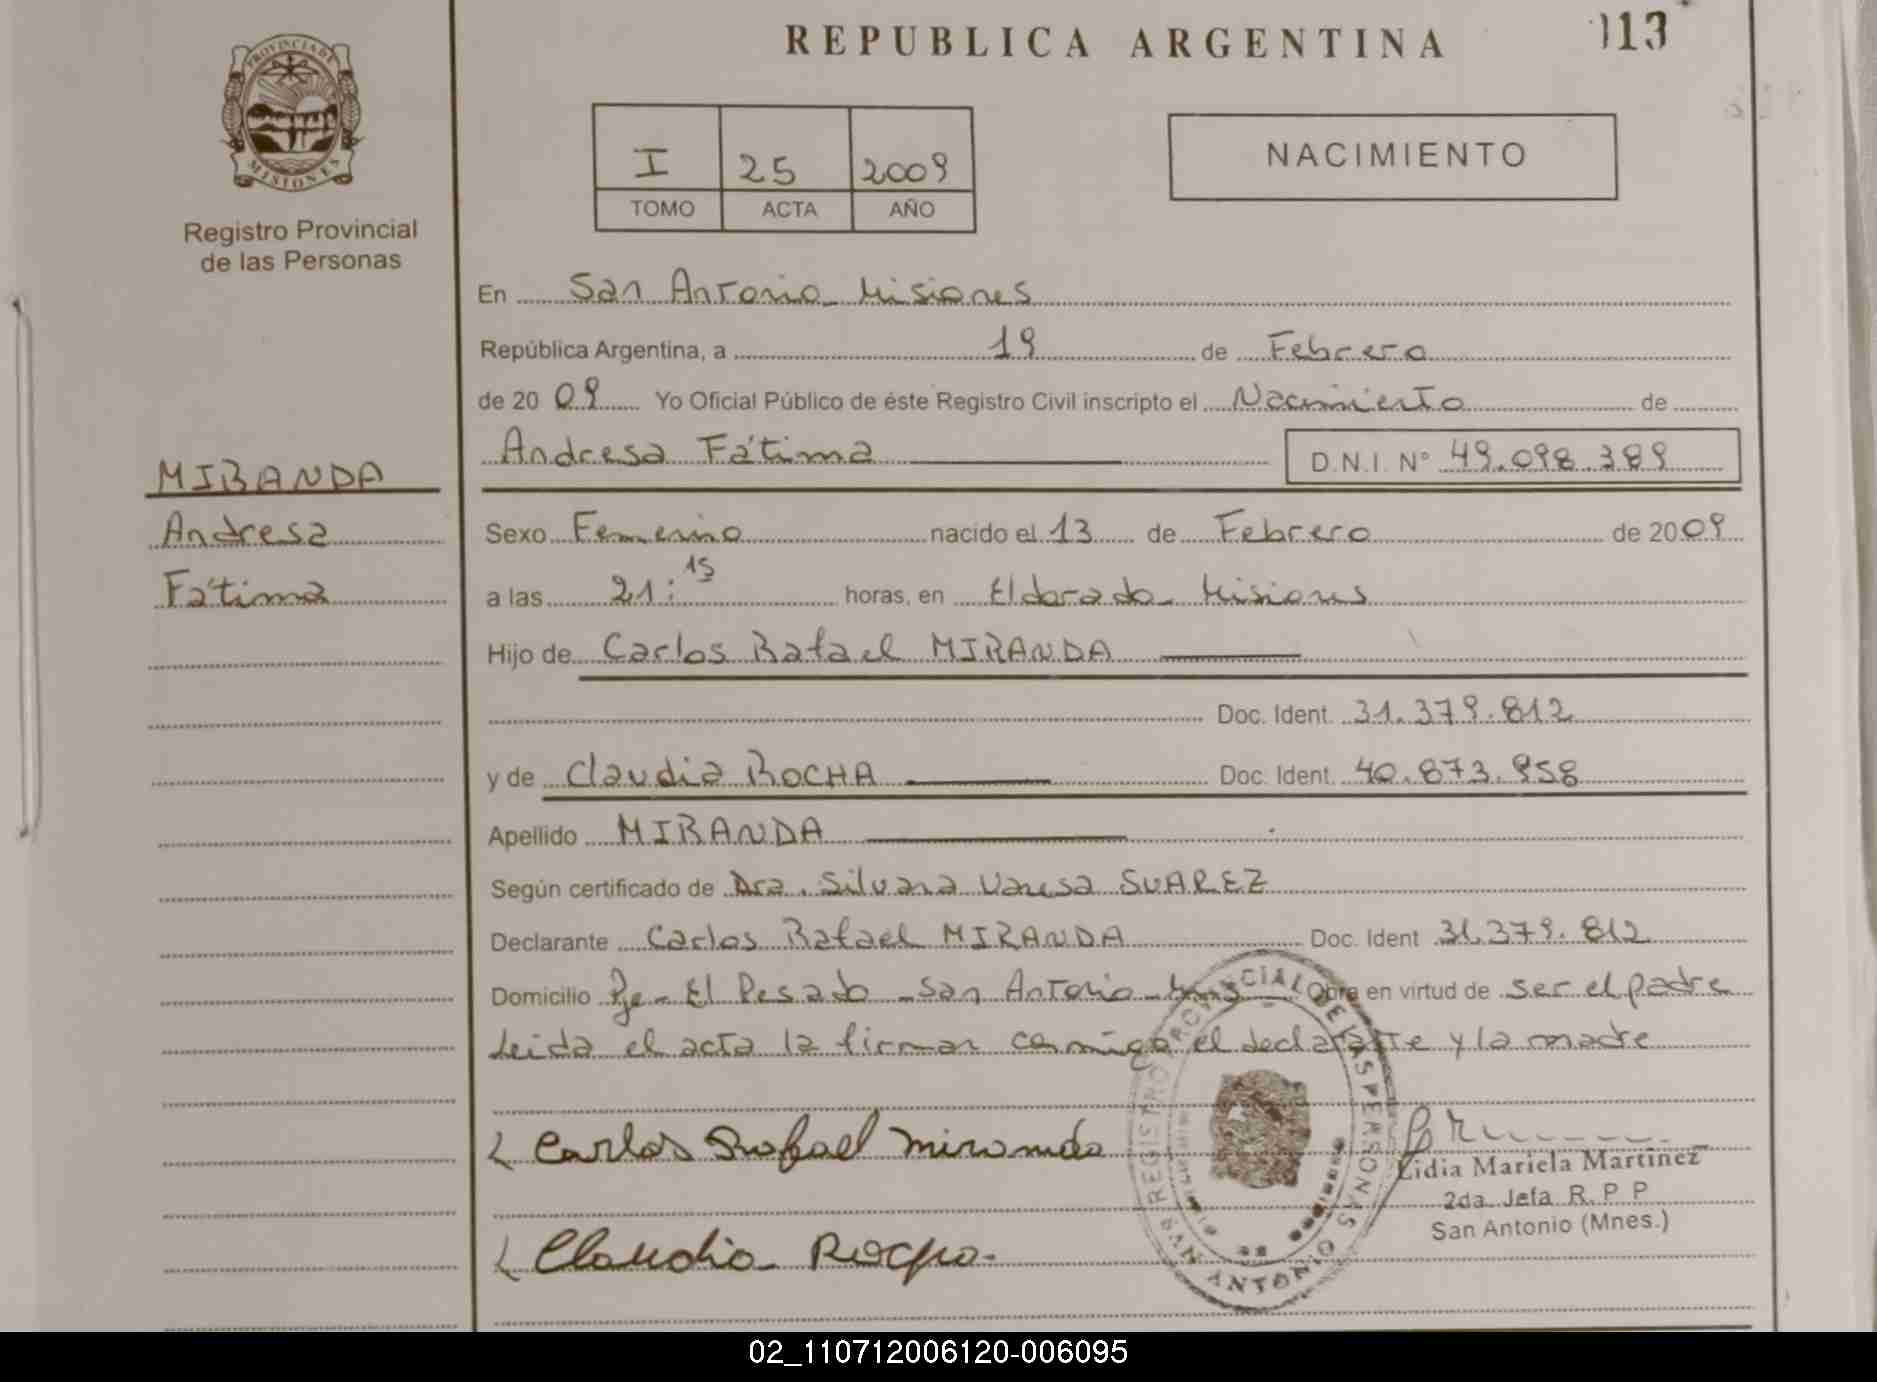 REPUBLICA ARGENTINA
113
PROVINCIA DE
MISIONES
Registro Provincial
de las Personas
I 25 2009
TOMO ACTA AÑO
NACIMIENTO
En San Antonio - Misiones
República Argentina, a 19 de Febrero
de 20 09 Yo Oficial Público de éste Registro Civil inscripto el Nacimiento de
Andresa Fátima D.N.I. Nº 49.098.389
MIRANDA
Andresa
Fátima
Sexo Femenino nacido el 13 de Febrero de 2009
a las 21:15 horas, en Eldorado - Misiones
Hijo de Carlos Rafael MIRANDA
Doc. Ident. 31.379.812
y de Claudia ROCHA Doc. Ident. 40.873.958
Apellido MIRANDA
Según certificado de Dra. Silvana Vanesa SUAREZ
Declarante Carlos Rafael MIRANDA Doc. Ident 31.379.812
Domicilio Pje - El Pesado - San Antonio - Mnes Obra en virtud de ser el padre
Leida el acta la firman conmigo el declarante y la madre
Carlos Rafael Miranda
Claudia Rocha
REGISTRO PROVINCIAL DE LAS PERSONAS
SAN ANTONIO
Lidia Mariela Martinez
2da. Jefa R. P P
San Antonio (Mnes.)
02_110712006120-006095